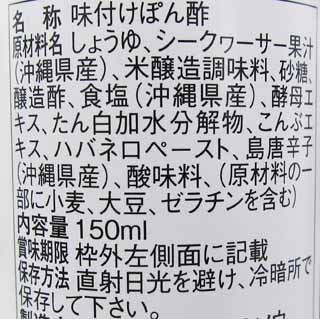 名 称 味付けぽん酢
原材料名 しょうゆ、シークヮーサー果汁
(沖縄県産)、米醸造調味料、砂糖、
醸造酢、食塩(沖縄県産)、酵母エ
キス、たん白加水分解物、こんぶエ
キス、ハバネロペースト、島唐辛子
(沖縄県産)、酸味料、(原材料の一
部に小麦、大豆、ゼラチンを含む)
内容量 150ml
賞味期限 枠外左側面に記載
保存方法 直射日光を避け、冷暗所で
保存して下さい。